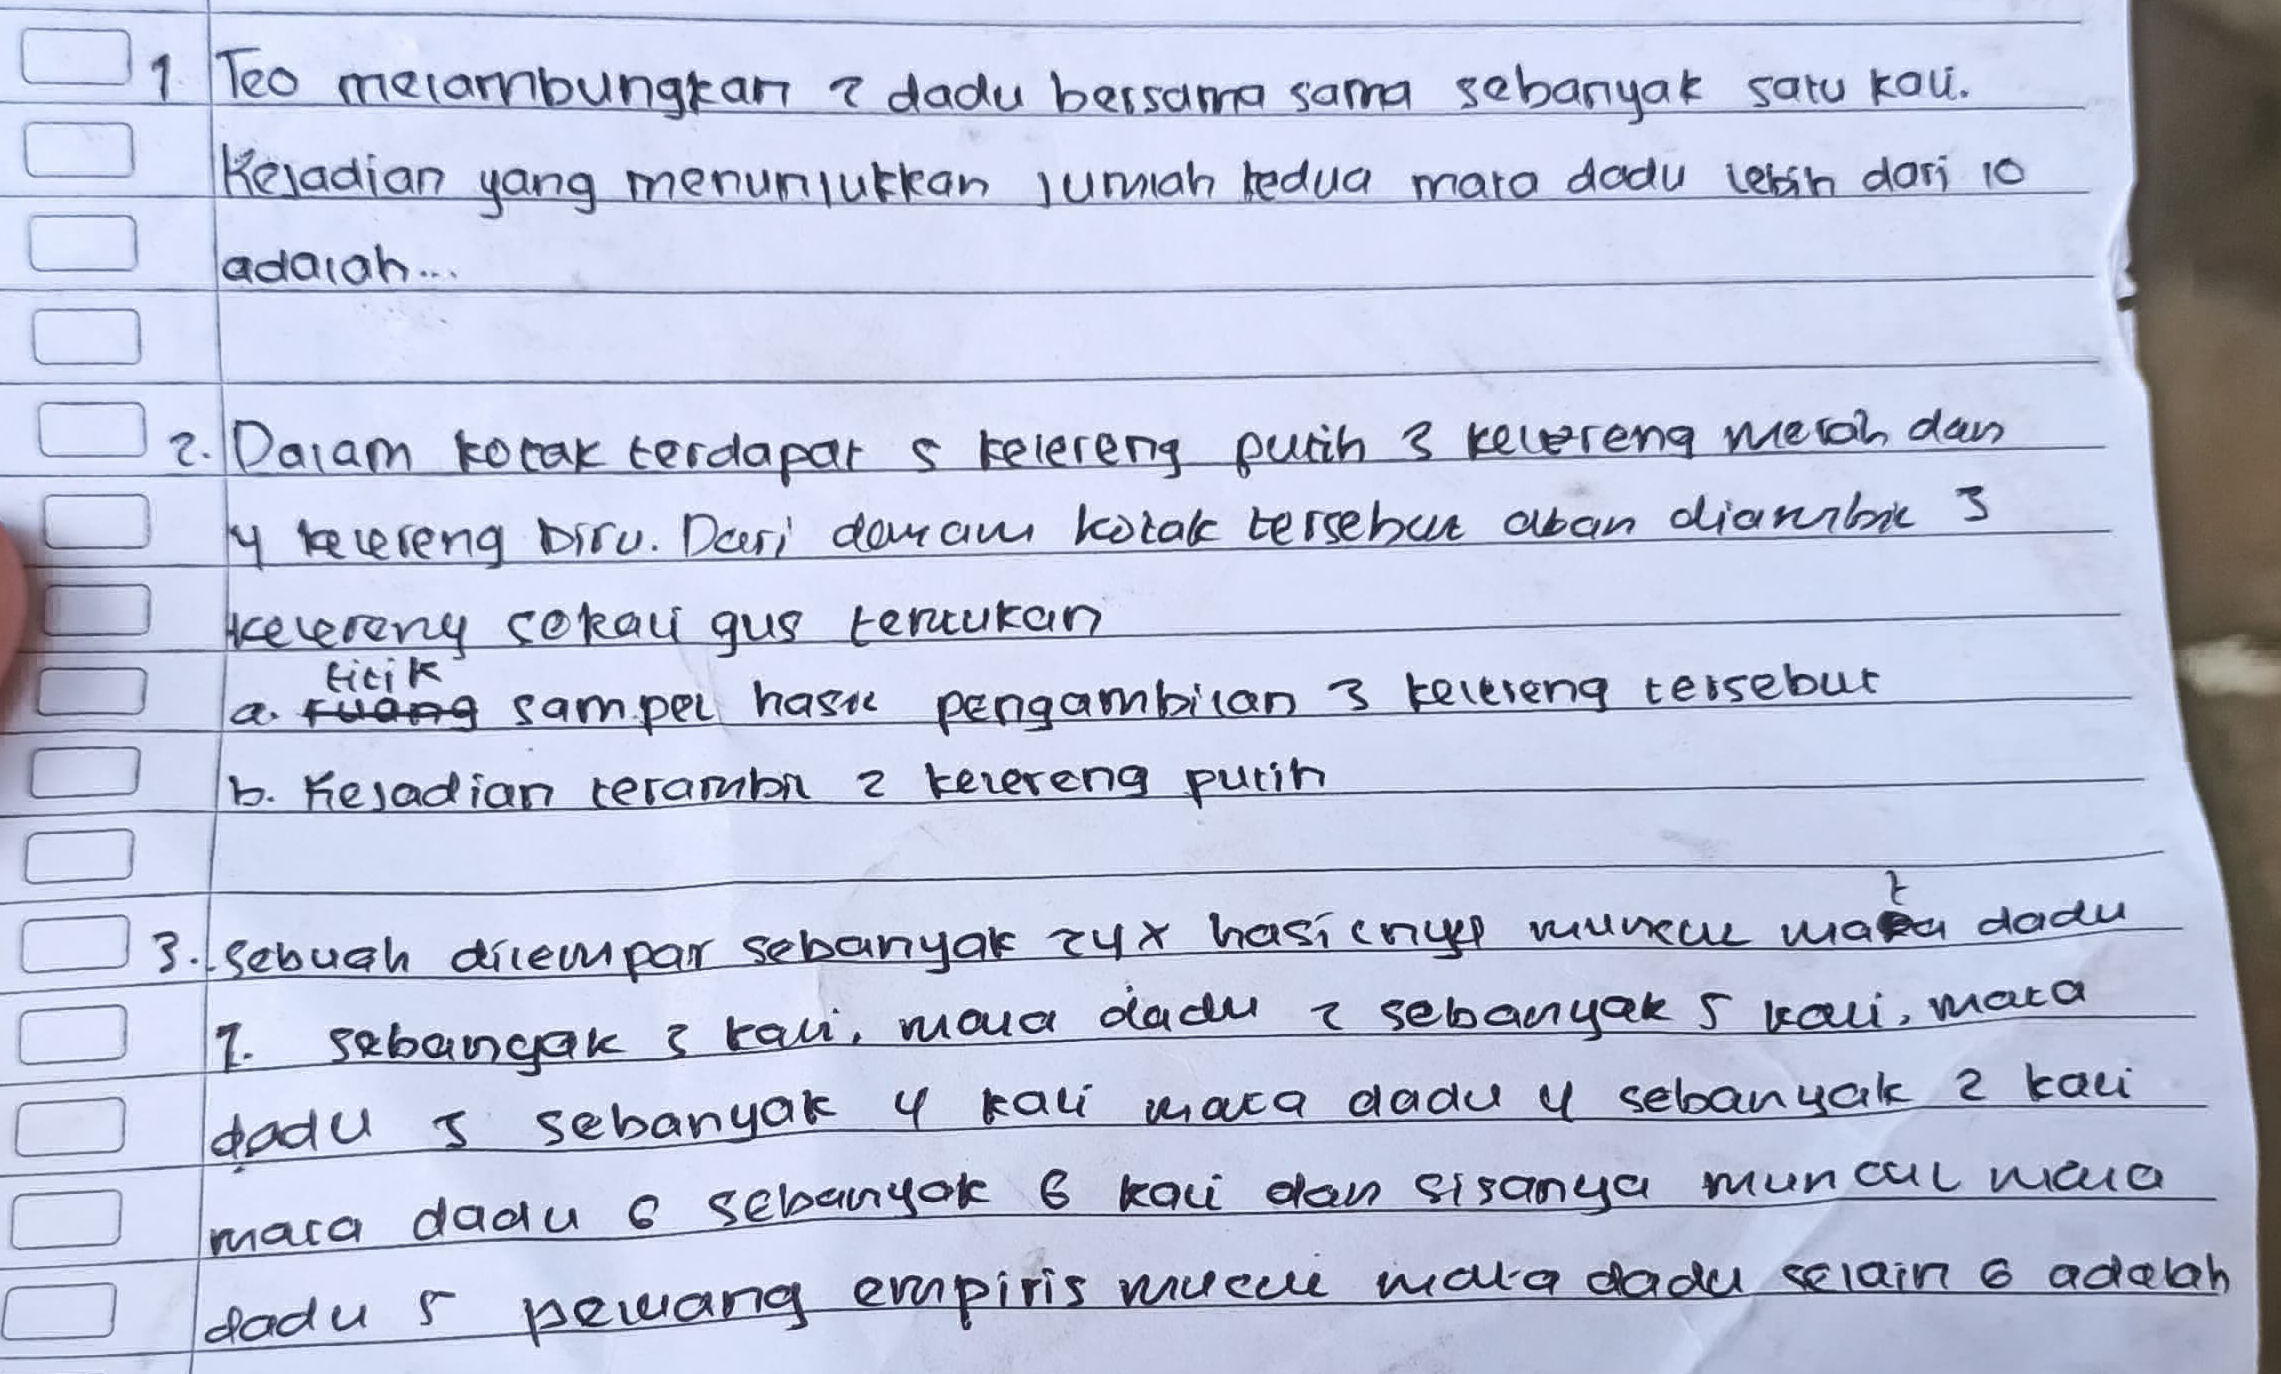 1. Teo melambungkan 2 dadu bersama sama sebanyak satu kali.
Kejadian yang menunjukkan jumlah kedua mata dadu lebih dari 10
adalah...
2. Dalam kotak terdapat 5 kelereng putih 3 kelereng merah dan
4 kelereng biru. Dari dalam kotak tersebut akan diambil 3
kelereng sekali gus tentukan
titik
a. ruang sampel hasil pengambilan 3 kelereng tersebut
b. Kejadian terambil 2 kelereng putih
3. Sebuah dilempar sebanyak 24x hasilnya muncul mata dadu
1. sebanyak 3 kali, mata dadu 2 sebanyak 5 kali, mata
dadu 3 sebanyak 4 kali mata dadu 4 sebanyak 2 kali
mata dadu 6 sebanyak 6 kali dan sisanya muncul mata
dadu 5 peluang empiris mucul mata dadu selain 6 adalah